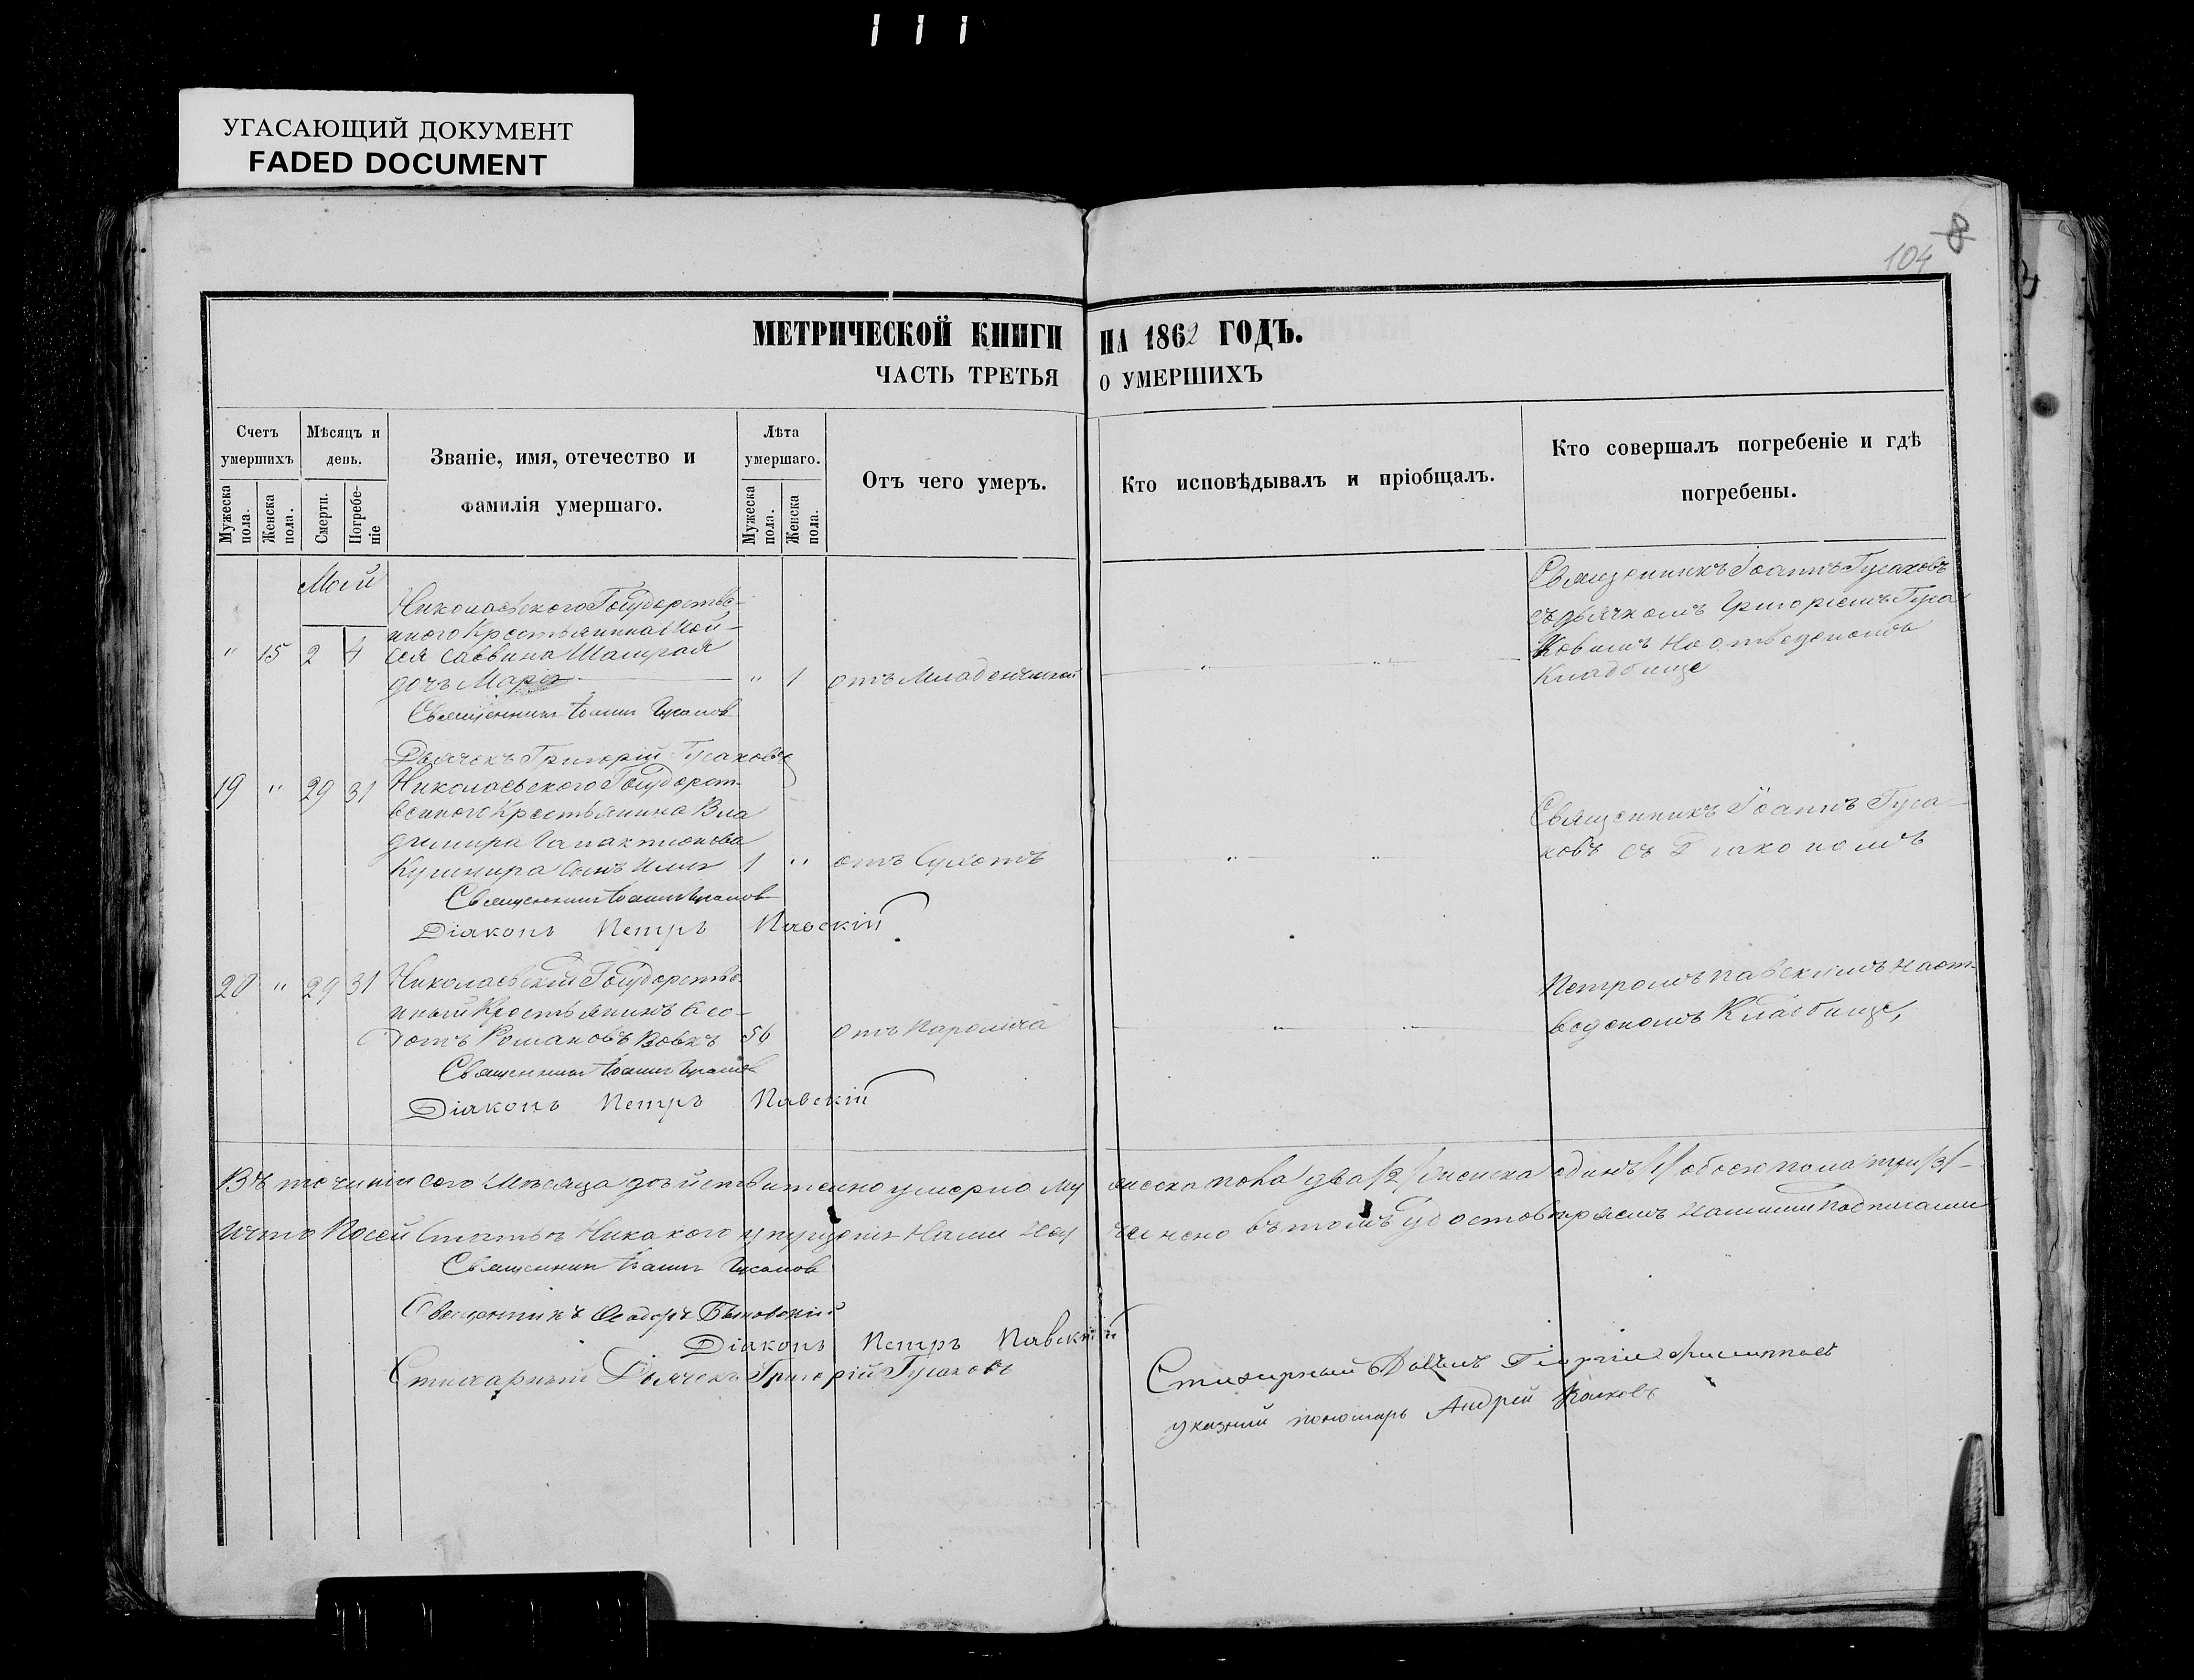 УГАСАЮЩИЙ ДОКУМЕНТ
FADED DOCUMENT
104 8
МЕТРИЧЕСКОЙ КНИГИ НА 1862 ГОДЪ.
ЧАСТЬ ТРЕТЬЯ О УМЕРШИХЪ
Счетъ умершихъ
Мужеска пола.
Женска пола.
Мѣсяцъ и день.
Смерти.
Погребе-
ніе
Званіе, имя, отечество и
фамилія умершаго.
Лѣта умершаго.
Мужеска пола.
Женска пола.
Отъ чего умеръ.
Кто исповѣдывалъ и пріобщалъ.
Кто совершалъ погребеніе и гдѣ
погребены.
Маій
Николаевского Государстве-
нного Крестьянина Мой-
" 15 2 4 сея Саввина Шамрая
дочь Марія " 1 отъ Младенческой
Священникъ Іоаннъ Гусаков
Дьячекъ Григорій Гусаковъ
Священникъ Іоаннъ Гусаковъ
съ дьячкомъ Григоріемъ Гуса
ковымъ На отведеномъ
Кладбище
19 " 29 31 Николаевского Государст-
венного Крестьянина Вла
димира Галактионова
Кушнира Сынъ Илія 1 " отъ Сухотъ
Священникъ Іоаннъ Гусаков
Діаконъ Петръ Павскій
Священникъ Іоаннъ Гуса-
ковъ съ Діакономъ
20 " 29 31 Николаевский Государстве-
нный Крестьянинъ Фео-
дотъ Романовъ Вовкъ 56 отъ Паралича
Священникъ Іоаннъ Гусаков
Діаконъ Петръ Павскій
Петромъ Павскимъ на от-
веденомъ Кладбище,
Въ теченіи сего Мѣсяца дѣйствительно умерло му жеска пола два /2/ женска одинъ /1/ обоего пола три /3/
И что По сей Статьѣ Никакого упущенія Нами Не у чинено въ томъ удостовѣряемъ Нашими Подписами
Священникъ Іоаннъ Гусаков
Священникъ Феодоръ
Діаконъ Петръ Павскій
Стихарный Дьячекъ Григорій Гусаковъ
Стихарный Георгій
указный пономарь Андрей